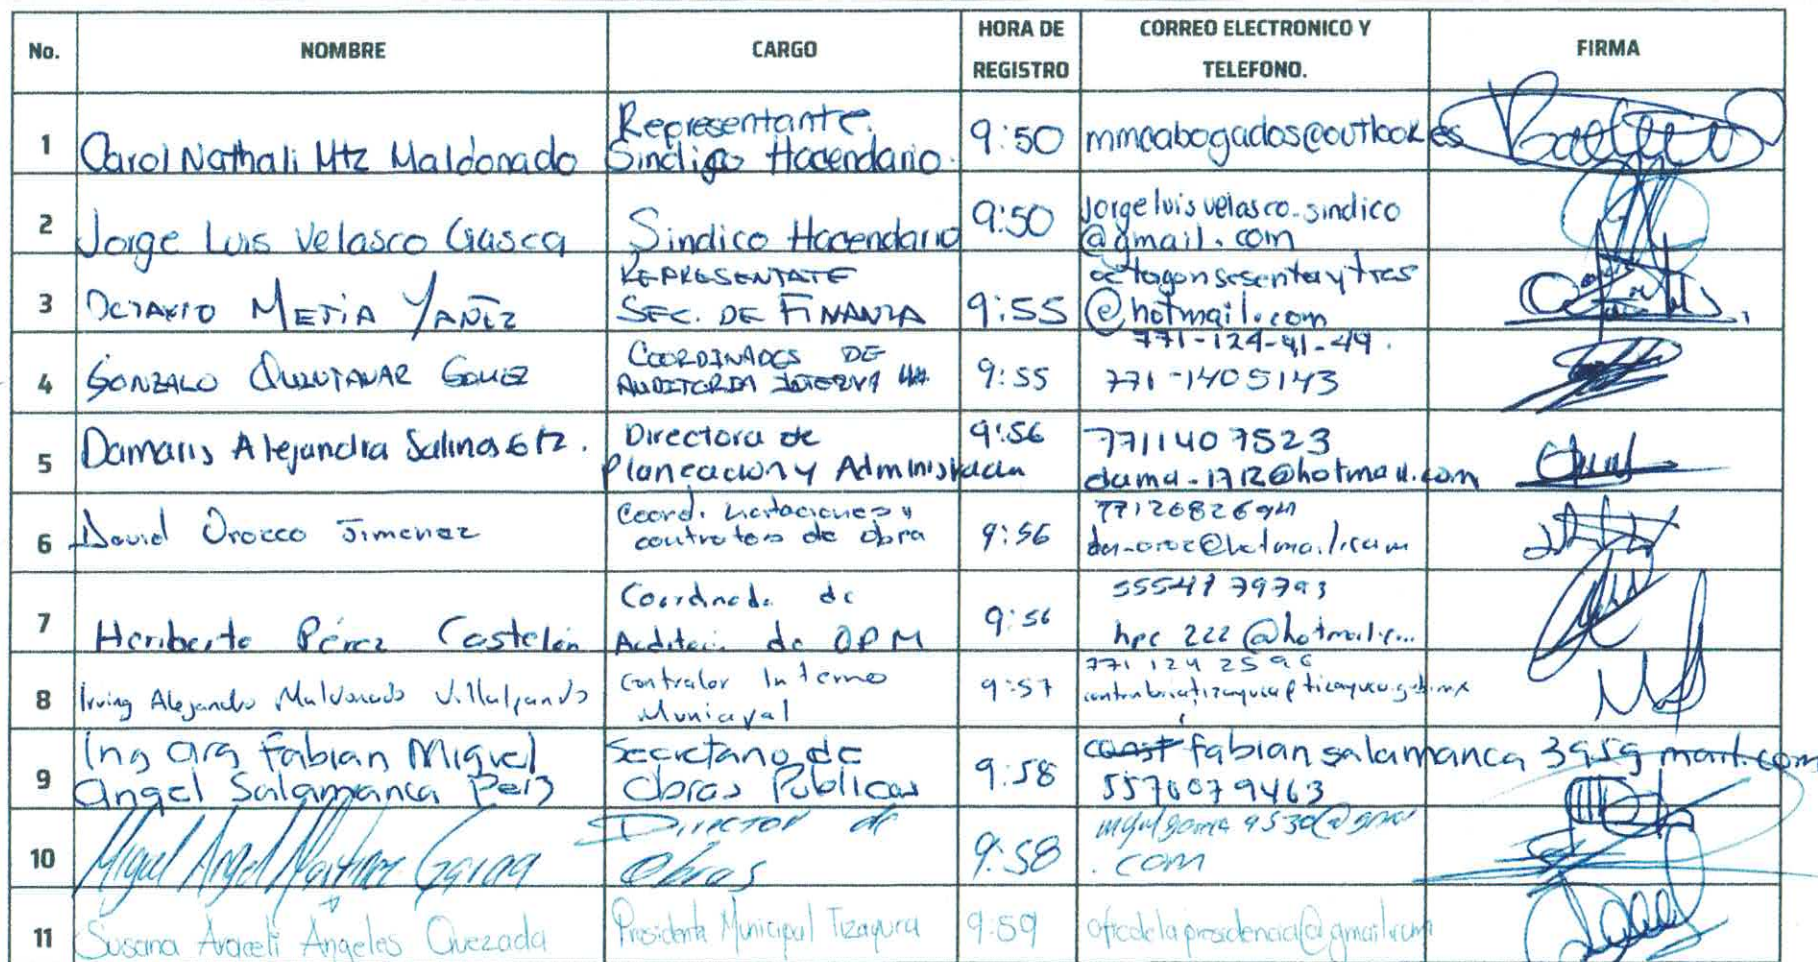 No. NOMBRE CARGO HORA DE REGISTRO CORREO ELECTRONICO Y TELEFONO. FIRMA
1 Carol Nathali Mtz Maldonado Representante. Sindico Hacendario. 9:50 mmcabogados@outlook.es
2 Jorge Luis Velasco Gasca Sindico Hacendario 9:50 jorgeluisvelasco.sindico
@gmail.com
3 OCTAVIO MEJIA YAÑEZ REPRESENTATE
SEC. DE FINANZA 9:55 octagonsesentaytres
@hotmail.com
771-124-41-49.
4 GONZALO QUINTANAR GOMEZ COORDINADOR DE
AUDITORIA INTERNA 9:55 771-1405143
5 Damaris Alejandra Salinas Gtz. Directora de
Planeacion y Administracion 9:56 7711407523
dama-1712@hotmail.com
6 David Orozco Jimenez Coord. licitaciones y
contratos de obra 9:56
7 Heriberto Pérez Castelán Coordinado de
Auditoria de OPM 9:56 5554179793
hpc 222@hotmail.c...
8 Irving Alejandro Maldonado Villalpando Contralor Interno
Municipal 9:57 771 124 2596
9 Ing arq Fabian Miguel
Angel Salamanca Perz Secretario de
Obras Publicas 9:58 fabian salamanca 3959 mail.com
5576079463
10 Miguel Angel Martinez Garcia Director de
Obras 9:58
.com
11 Susana Araceli Angeles Quezada Presidenta Municipal Tizayuca 9:59 oficdelapresidencia@gmail.com